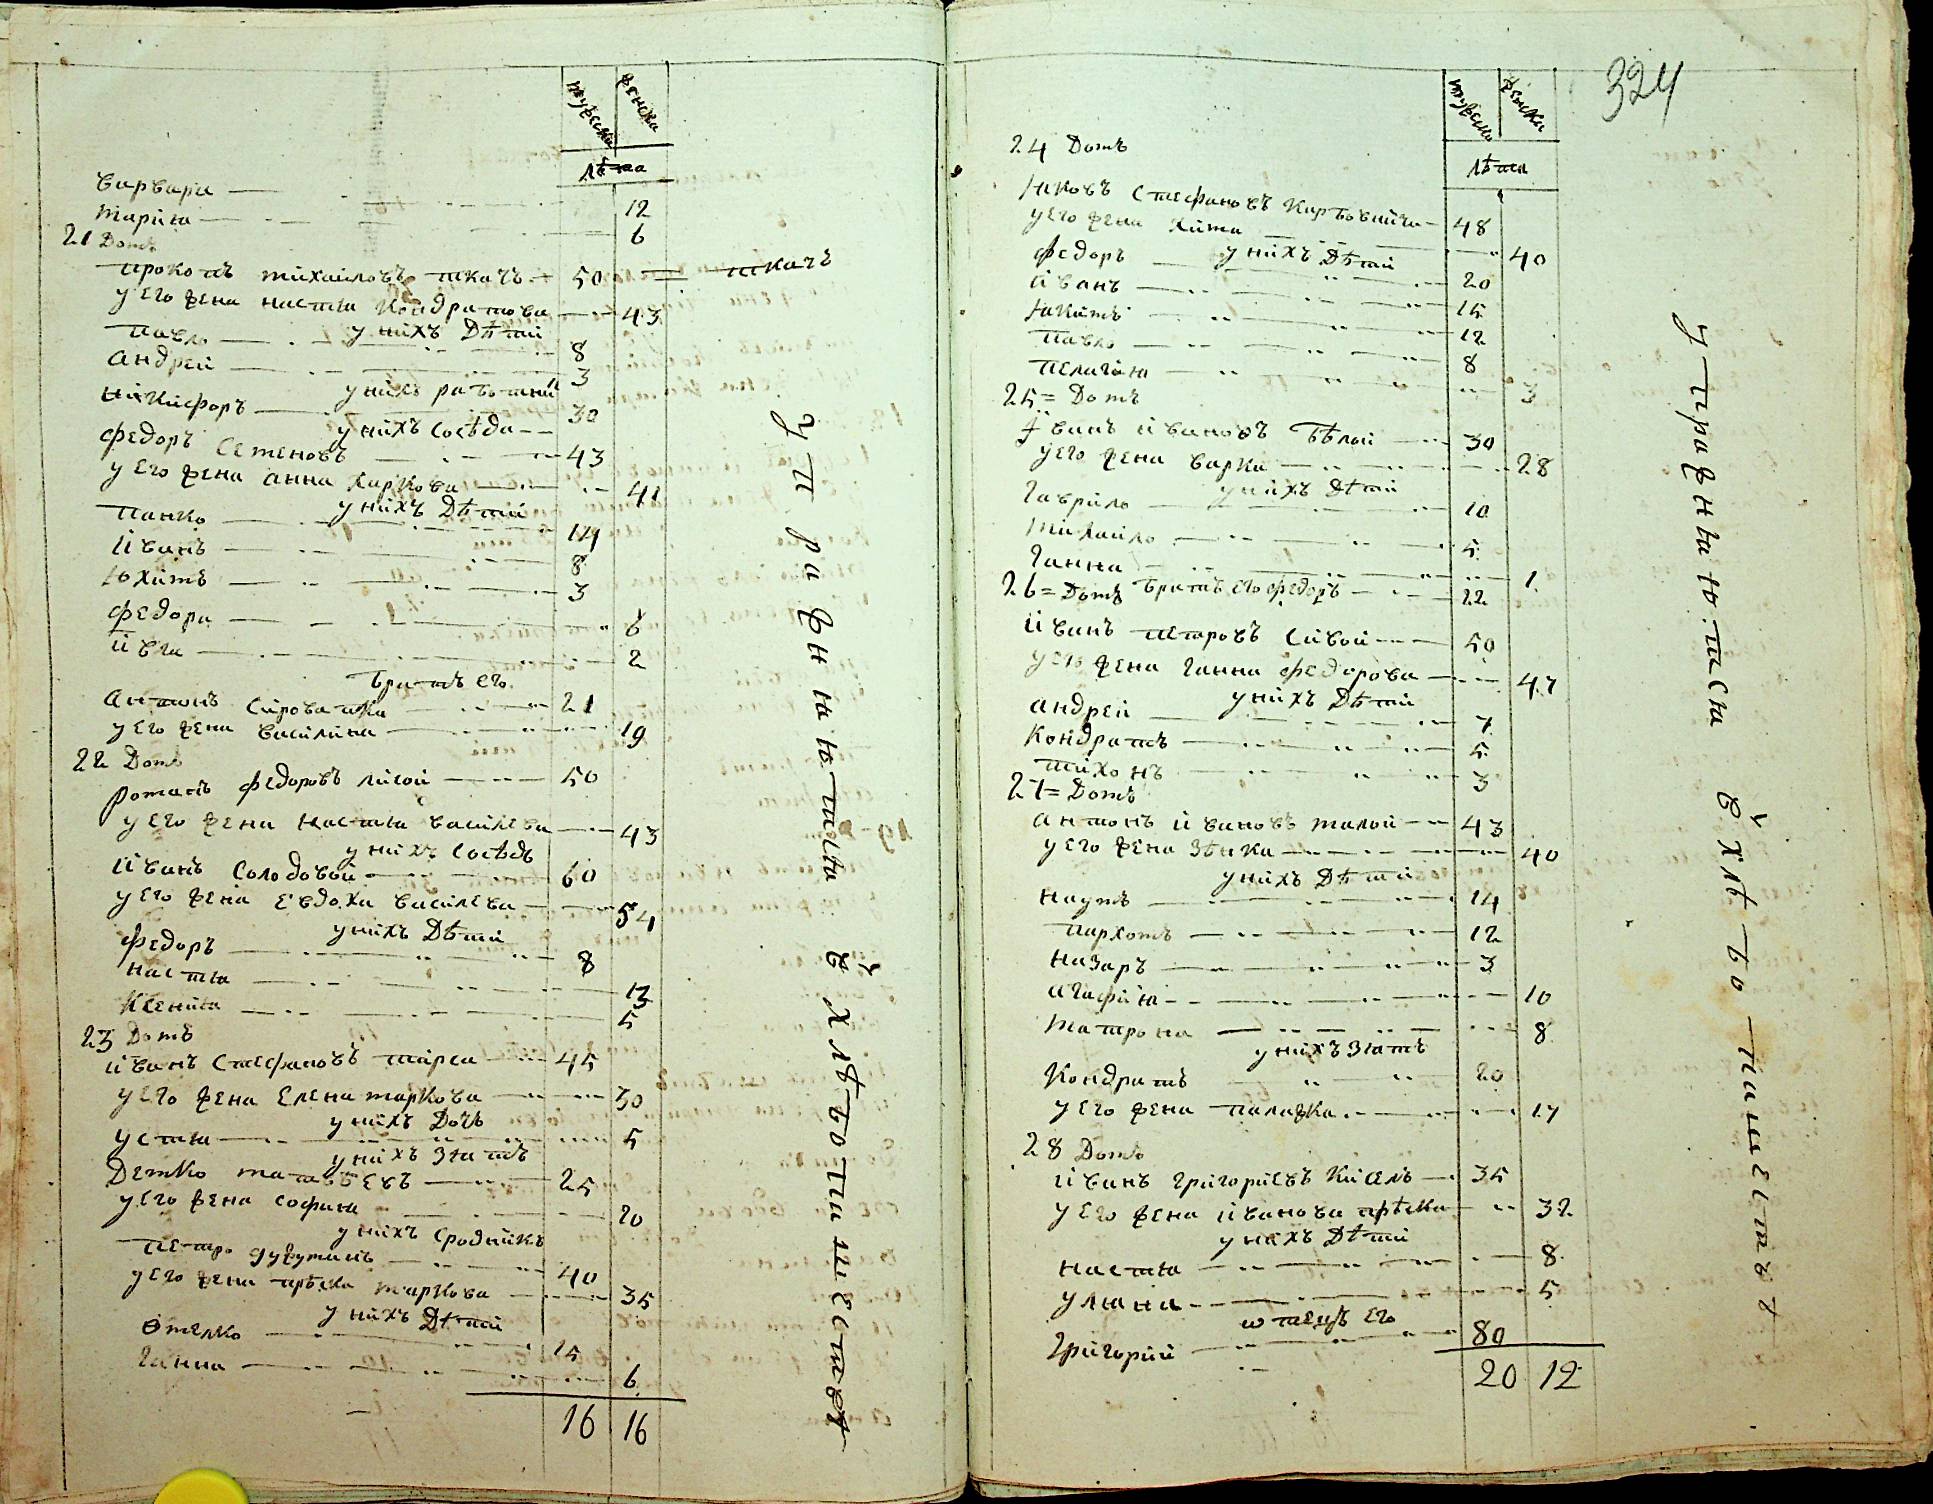 мужеска женска
лѣта
варвара 12
мария 6
21 Домъ
прокопъ михаиловъ ткачъ 50 ткачъ
у его жена настя Кондратова 43
у нихъ Дѣти
павло 8
андрей 3
у нихъ работникъ
никифоръ 30
у нихъ Соседа
федоръ Семеновъ 43
у его жена анна харкова 41
у нихъ Дѣти
панко 14
иванъ 8
юхимъ 3
федора 6
ивга 2
братъ его
антонъ Сироватка 21
у его жена василина 19
22 Домъ
романъ федоровъ лисой 50
у его жена настя василева 43
у нихъ Соседъ
иванъ Солодовой 60
у его жена евдоха василева 54
у нихъ Дѣти
федоръ 8
настя 13
Ксения 5
23 Домъ
иванъ Стефановъ 45
у его жена елена маркова 30
у нихъ Дочь
устя 5
у нихъ зять
Демко матвѣевъ 25
у его жена софия 20
у нихъ Сродникъ
петро 40
у его жена прѣска маркова 35
у нихъ Дѣти
омелко 15
ганна 6
16 16
упражняются в хлѣбопашествѣ
324
мужеска женска
лѣта
24 Домъ
яковъ Стефановъ 48
у его жена хима 40
у нихъ Дѣти
федоръ 20
иванъ 15
якимъ 12
павло 8
пелагия 3
25 = Домъ
иванъ ивановъ бѣлой 30
у его жена варка 28
у нихъ Дѣти
гаврило 10
михайло 5
ганна 1
братъ его федоръ 22
26 = Домъ
иванъ петровъ Сивой 50
у его жена ганна федорова 47
у нихъ Дѣти
андрей 7
Кондратъ 5
тихонъ 3
27 = Домъ
антонъ ивановъ малой 43
у его жена зѣнка 40
у нихъ Дѣти
наумъ 14
пархомъ 12
назаръ 3
агафия 10
матрона 8
у нихъ зять
Кондратъ 20
у его жена палажка 17
28 Домъ
иванъ григориевъ Кисель 35
у его жена иванова прѣска 32
у нихъ Дѣти
настя 8
уляна 5
ѡтецъ его
григорий 80
20 12
упражняются в хлѣбопашествѣ